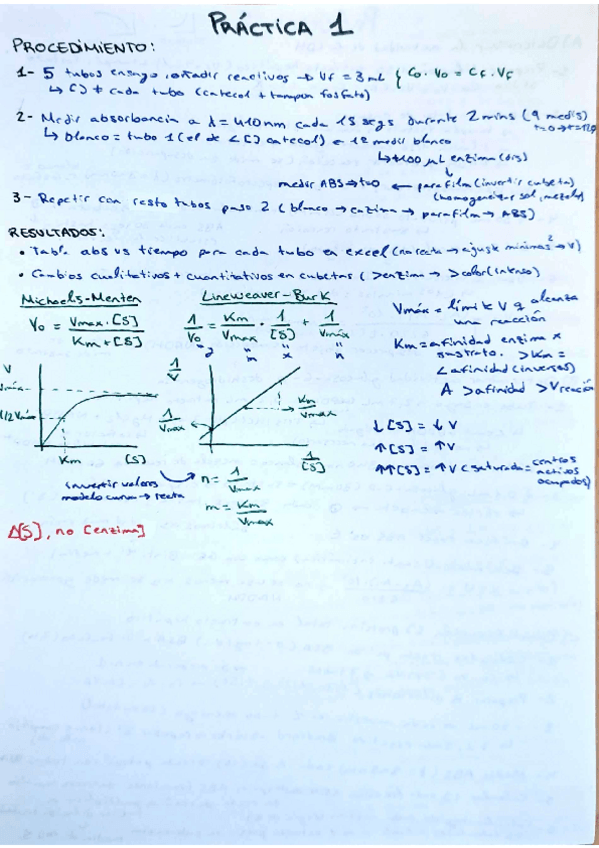 PRÁCTICA 1
PROCEDIMIENTO:
1- 5 tubos ensayo, añadir reactivos → Vf = 3 mL { C0 · V0 = Cf · Vf
↳ [] ≠ cada tubo (catecol + tampón fosfato)
2- Medir absorbancia a λ = 410 nm cada 15 segs durante 2 mins (9 medis)
t=0 → t=120
↳ blanco = tubo 1 (el de < [] catecol) ← 1º medir blanco
↳ +100 μL enzima
medir ABS → t=0 ← parafilm (invertir cubeta)
(homogeneizar sol, mezcla)
3- Repetir con resto tubos paso 2 (blanco → enzima → parafilm → ABS)
RESULTADOS:
• Tabla abs vs tiempo para cada tubo en excel (no recta → ajuste mínimos² → V)
• Cambios cualitativos + cuantitativos en cubetas (>enzima → >color (intenso)
Michaelis-Menten
V0 = Vmax · [S] / Km + [S]
Lineweaver-Burk
1/V0 = Km/Vmax · 1/[S] + 1/Vmáx
y = m x n
Vmáx = límite V q alcanza
una reacción
Km = afinidad enzima x
sustrato. >Km =
< afinidad (inversos)
A >afinidad >Vreacción
V
Vmáx
1/2 Vmáx
Km [S]
1/V
1/Vmax
Km/Vmax
1/[S]
↓[S] = ↓V
↑[S] = ↑V
↑↑[S] = ↑V < saturada = centros
activos
ocupados)
invertir valores
modelo curva → recta
n = 1/Vmax
m = Km/Vmax
Δ[S], no [enzima]